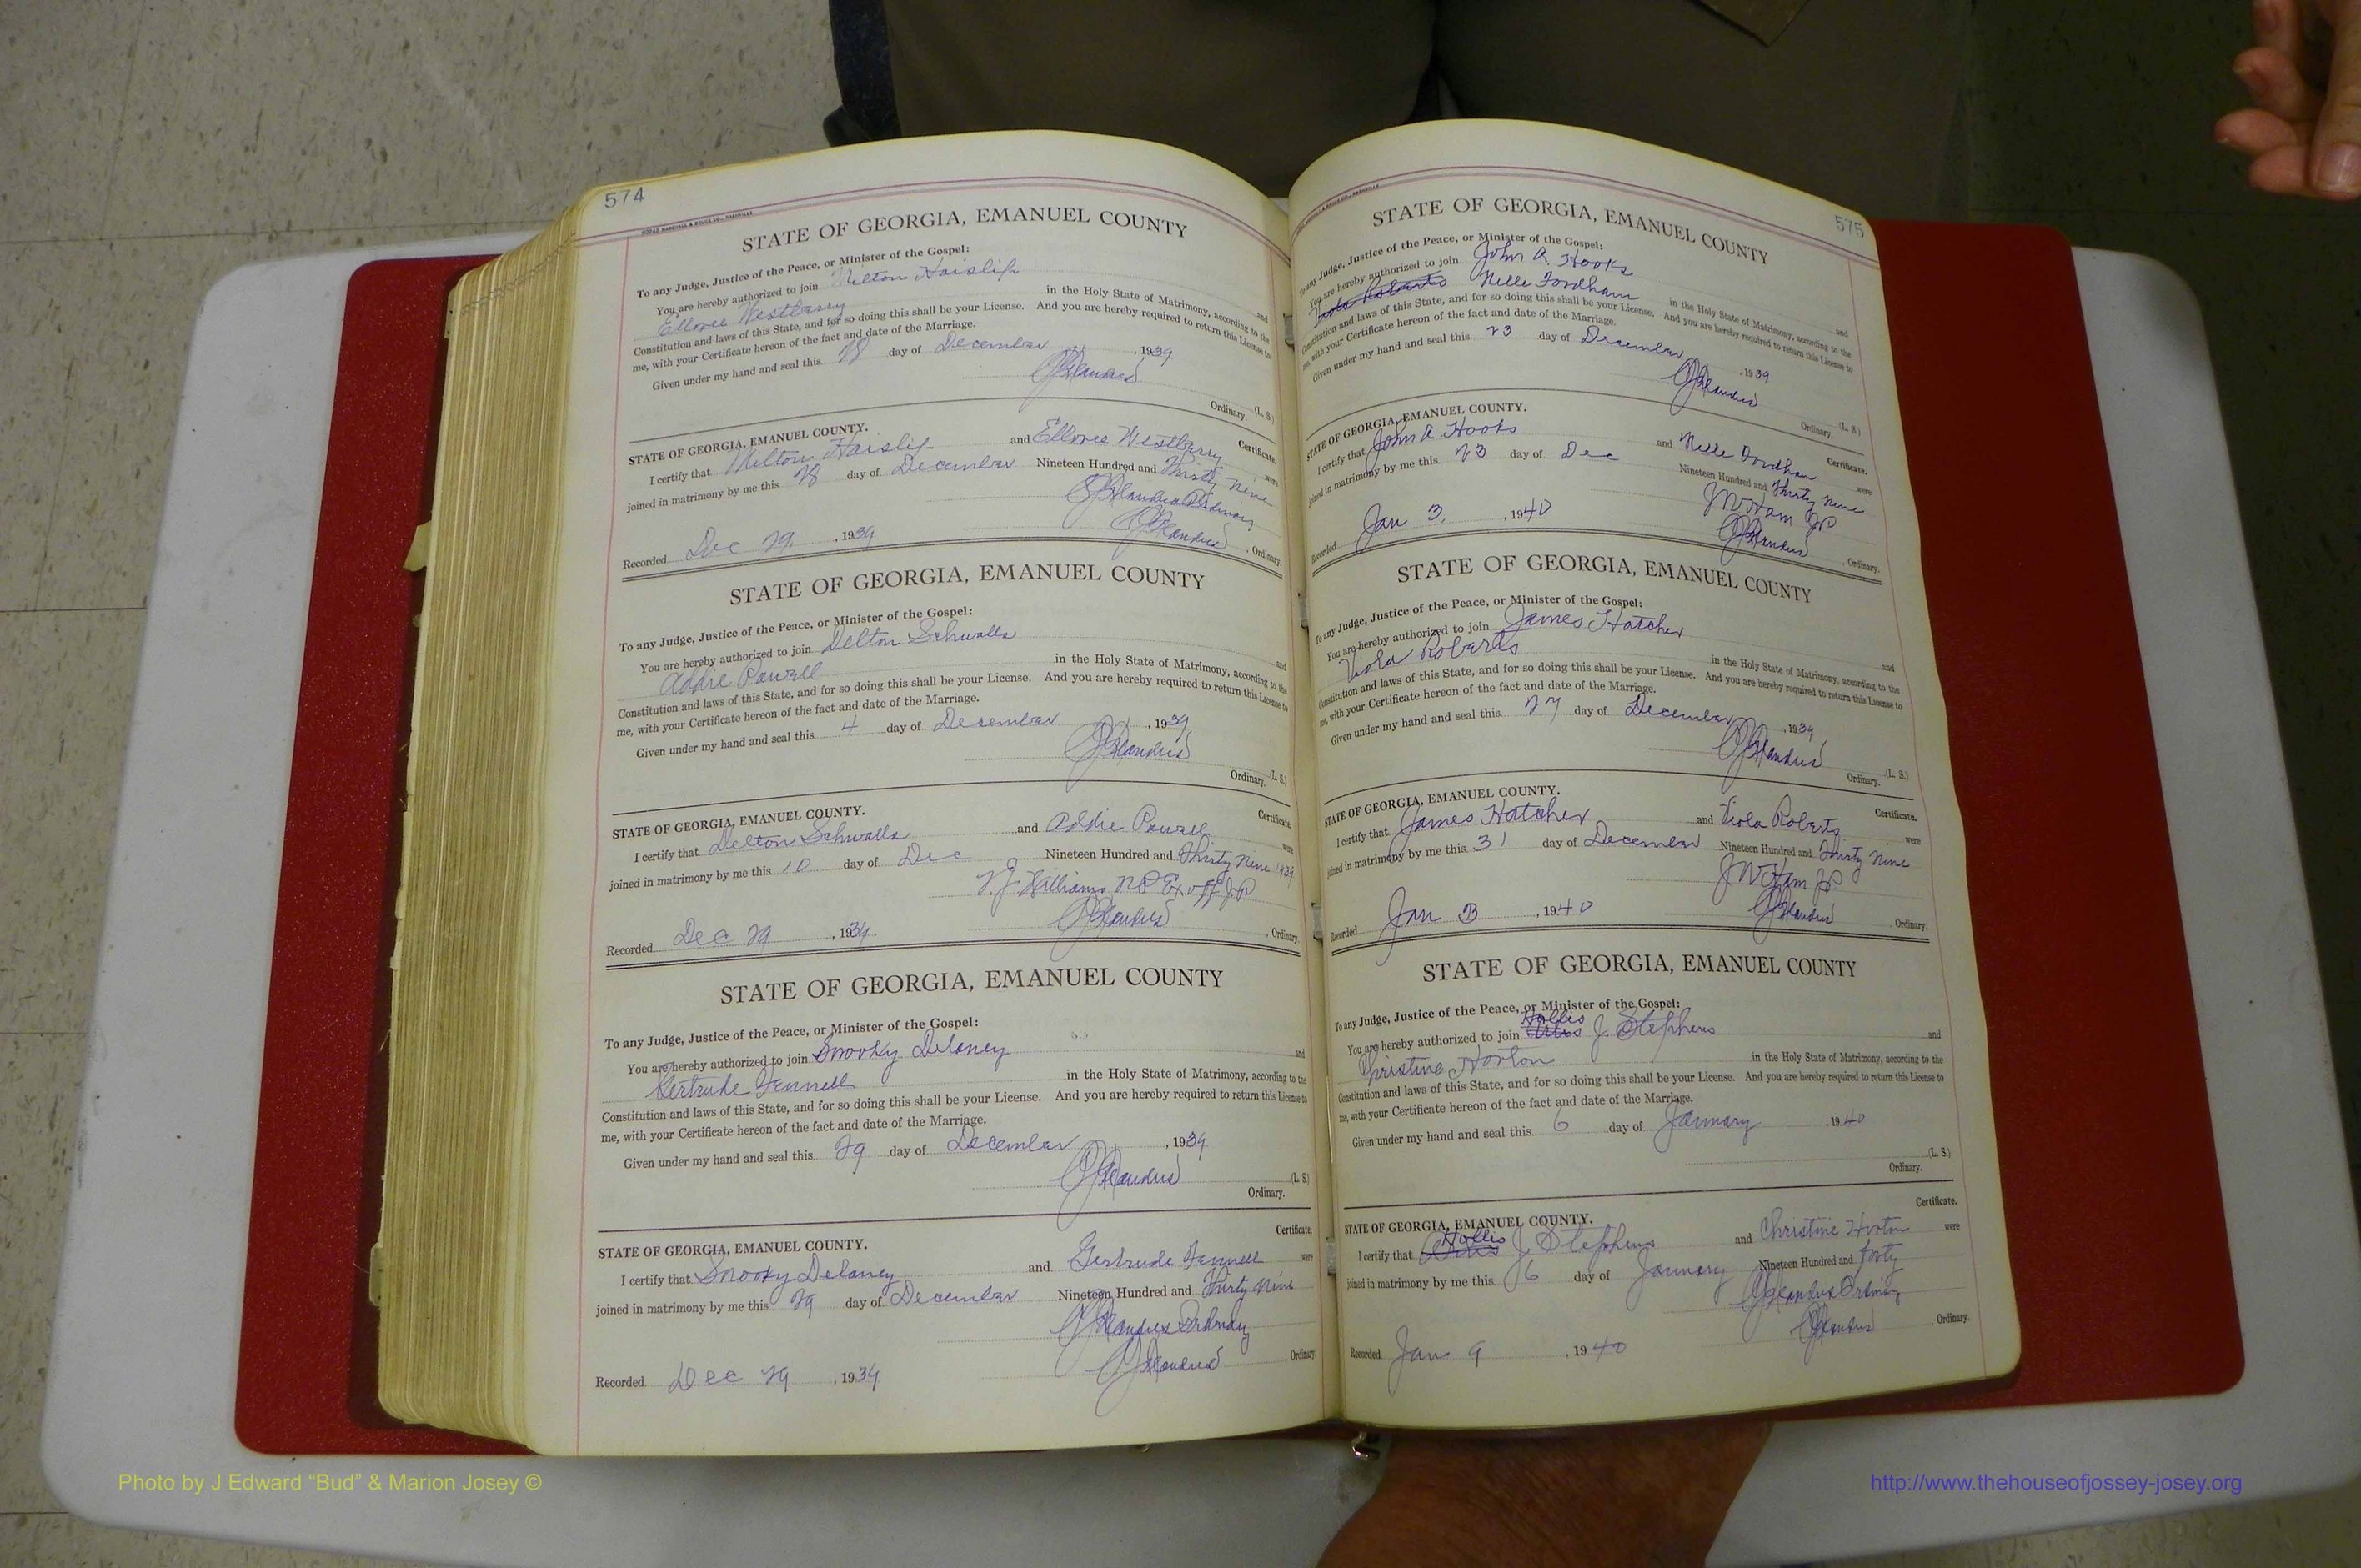 574
STATE OF GEORGIA, EMANUEL COUNTY
To any Judge, Justice of the Peace, or Minister of the Gospel:
You are hereby authorized to join Milton Haislip and
Ellovee Westbarry in the Holy State of Matrimony, according to the
Constitution and laws of this State, and for so doing this shall be your License. And you are hereby required to return this License to
me, with your Certificate hereon of the fact and date of the Marriage.
Given under my hand and seal this 28 day of December, 1939
(L. S.)
Ordinary.
STATE OF GEORGIA, EMANUEL COUNTY.
Certificate.
I certify that Milton Haislip and Ellovee Westbarry were
joined in matrimony by me this 28 day of December Nineteen Hundred and Thirty Nine
Ordinary
Recorded Dec 29, 1939 , Ordinary.
STATE OF GEORGIA, EMANUEL COUNTY
To any Judge, Justice of the Peace, or Minister of the Gospel:
You are hereby authorized to join Delton Schwalls and
Addie Powell in the Holy State of Matrimony, according to the
Constitution and laws of this State, and for so doing this shall be your License. And you are hereby required to return this License to
me, with your Certificate hereon of the fact and date of the Marriage.
Given under my hand and seal this 4 day of December, 1939
(L. S.)
Ordinary.
STATE OF GEORGIA, EMANUEL COUNTY.
Certificate.
I certify that Delton Schwalls and Addie Powell were
joined in matrimony by me this 10 day of Dec Nineteen Hundred and Thirty Nine 1939
Williams NP Ex off J.P
Recorded Dec 29, 1939 , Ordinary.
STATE OF GEORGIA, EMANUEL COUNTY
To any Judge, Justice of the Peace, or Minister of the Gospel:
You are hereby authorized to join Snooky Delaney and
Gertrude Fennell in the Holy State of Matrimony, according to the
Constitution and laws of this State, and for so doing this shall be your License. And you are hereby required to return this License to
me, with your Certificate hereon of the fact and date of the Marriage.
Given under my hand and seal this 29 day of December, 1939
(L. S.)
Ordinary.
Certificate.
STATE OF GEORGIA, EMANUEL COUNTY.
I certify that Snooky Delaney and Gertrude Fennell were
joined in matrimony by me this 29 day of December Nineteen Hundred and Thirty Nine
Ordinary
Recorded Dec 29, 1939 , Ordinary.
575
STATE OF GEORGIA, EMANUEL COUNTY
To any Judge, Justice of the Peace, or Minister of the Gospel:
You are hereby authorized to join John A. Hooks and
Viola Roberts Nelle Fordham in the Holy State of Matrimony, according to the
Constitution and laws of this State, and for so doing this shall be your License. And you are hereby required to return this License to
me, with your Certificate hereon of the fact and date of the Marriage.
Given under my hand and seal this 23 day of December, 1939
(L. S.)
Ordinary.
STATE OF GEORGIA, EMANUEL COUNTY.
Certificate.
I certify that John A Hooks and Nelle Fordham were
joined in matrimony by me this 23 day of Dec Nineteen Hundred and Thirty Nine
JP
Recorded Jan 3, 1940 , Ordinary.
STATE OF GEORGIA, EMANUEL COUNTY
To any Judge, Justice of the Peace, or Minister of the Gospel:
You are hereby authorized to join James Hatcher and
Viola Roberts in the Holy State of Matrimony, according to the
Constitution and laws of this State, and for so doing this shall be your License. And you are hereby required to return this License to
me, with your Certificate hereon of the fact and date of the Marriage.
Given under my hand and seal this 27 day of December, 1939
(L. S.)
Ordinary.
STATE OF GEORGIA, EMANUEL COUNTY.
Certificate.
I certify that James Hatcher and Viola Roberts were
joined in matrimony by me this 31 day of December Nineteen Hundred and Thirty Nine
JP
Recorded Jan 3, 1940 , Ordinary.
STATE OF GEORGIA, EMANUEL COUNTY
To any Judge, Justice of the Peace, or Minister of the Gospel:
You are hereby authorized to join Hollis J. Stephens and
Christine Horton in the Holy State of Matrimony, according to the
Constitution and laws of this State, and for so doing this shall be your License. And you are hereby required to return this License to
me, with your Certificate hereon of the fact and date of the Marriage.
Given under my hand and seal this 6 day of January, 1940
(L. S.)
Ordinary.
Certificate.
STATE OF GEORGIA, EMANUEL COUNTY.
I certify that Hollis J Stephens and Christine Horton were
joined in matrimony by me this 6 day of January Nineteen Hundred and forty
Ordinary
Recorded Jan 9, 1940 , Ordinary.
Photo by J Edward “Bud” & Marion Josey ©
http://www.thehouseofjossey-josey.org